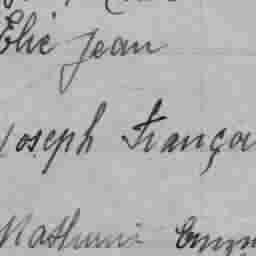 Elie Jean
Joseph Françoi
Mathurin